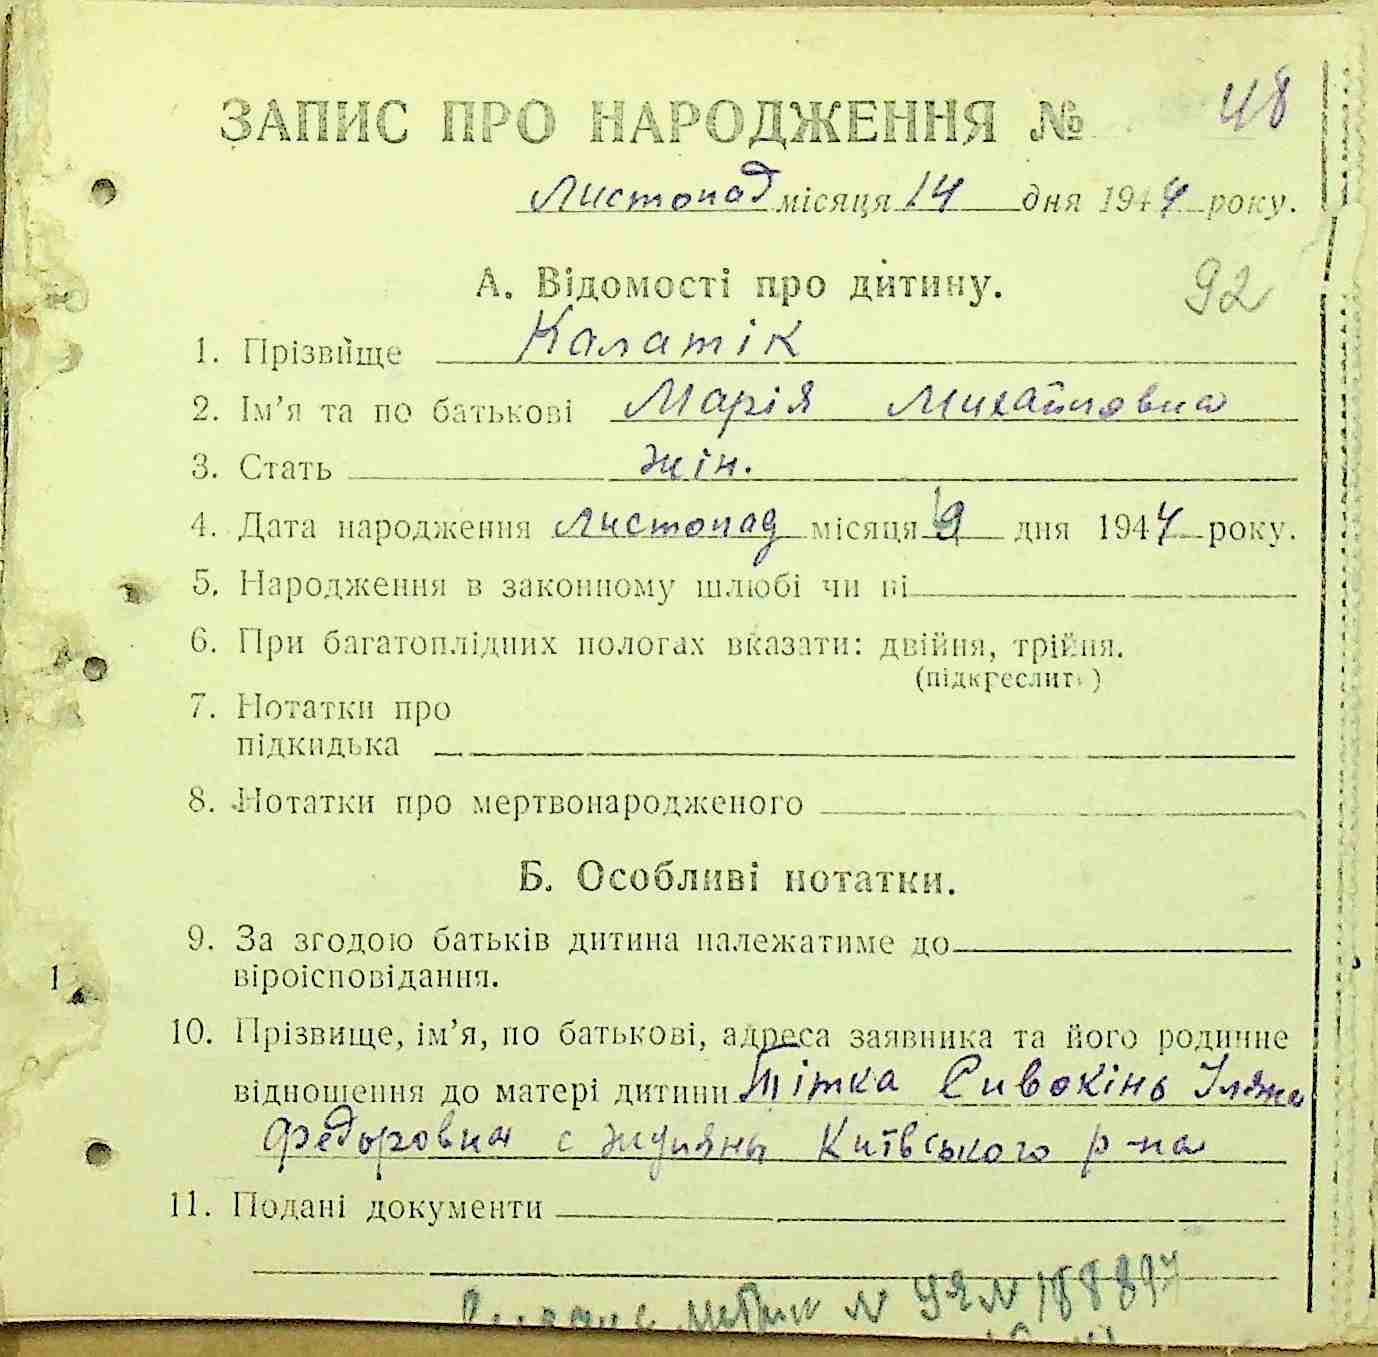 ЗАПИС ПРО НАРОДЖЕННЯ № 48
Листопад місяця 14 дня 1944 року.
А. Відомості про дитину.
92
1. Прізвище Калатік
2. Ім'я та по батькові Марія Михайловна
3. Стать жін.
4. Дата народження Листопад місяця 9 дня 1944 року.
5. Народження в законному шлюбі чи ні
6. При багатоплідних пологах вказати: двійня, трійня.
(підкреслить)
7. Нотатки про
підкидька
8. Нотатки про мертвонародженого
Б. Особливі нотатки.
9. За згодою батьків дитина належатиме до
віроісповідання.
10. Прізвище, ім'я, по батькові, адреса заявника та його родинне
відношення до матері дитини Тітка Сивокінь
Федоровна с Жуляны Київського р-на
11. Подані документи
N 188897